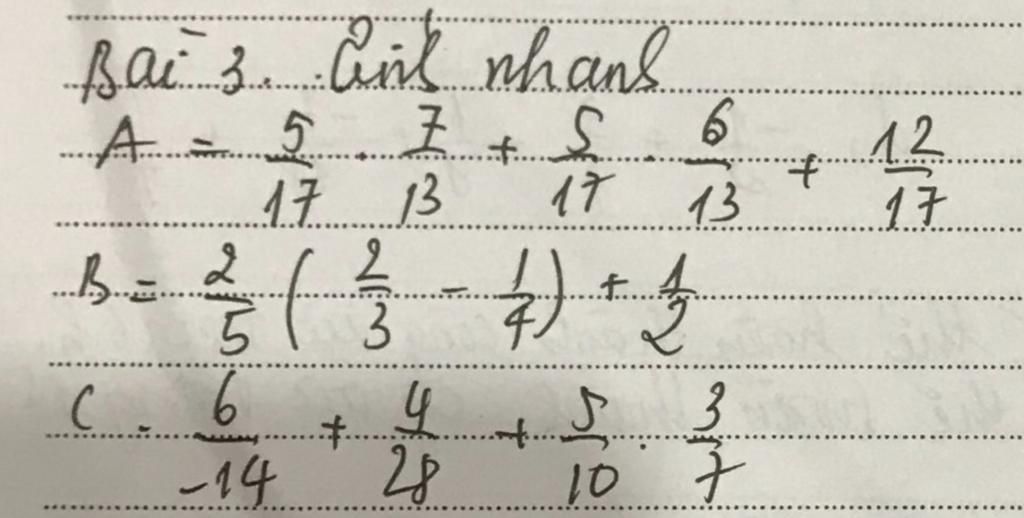 Bài 3. Tính nhanh
A = 5/17 . 7/13 + 5/17 . 6/13 + 12/17
B = 2/5 ( 2/3 - 1/4 ) + 1/2
C - 6/-14 + 4/28 + 5/10 . 3/7